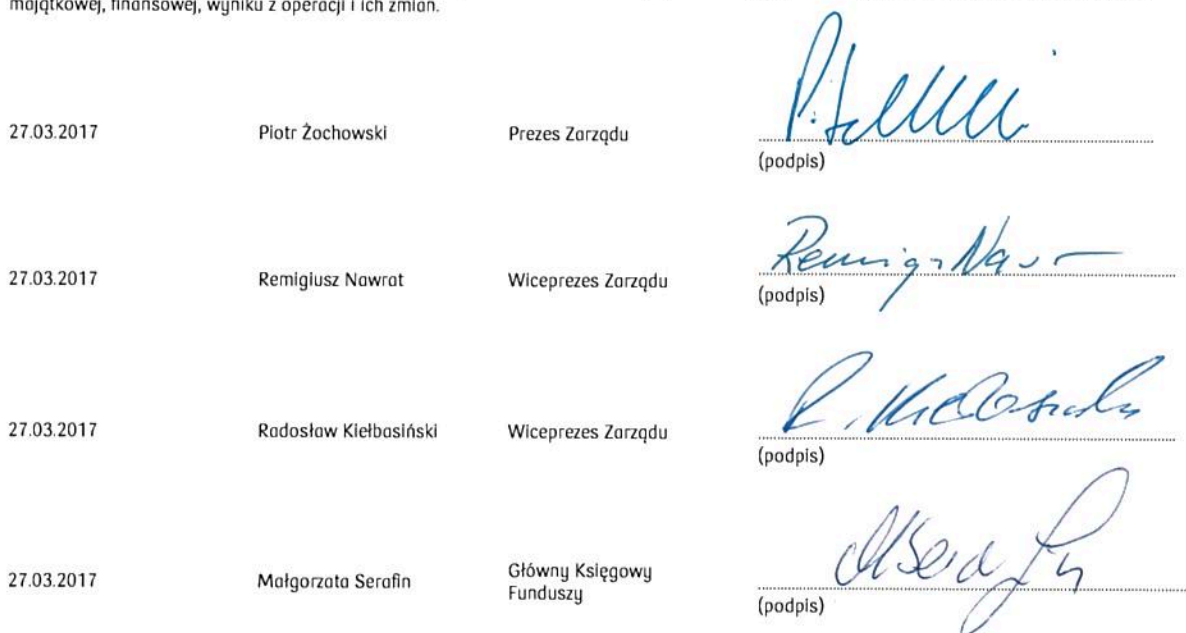 majątkowej, finansowej, wyniku z operacji i ich zmian.
27.03.2017 Piotr Żochowski Prezes Zarządu
(podpis)
27.03.2017 Remigiusz Nawrat Wiceprezes Zarządu
(podpis)
27.03.2017 Radosław Kiełbasiński Wiceprezes Zarządu
(podpis)
27.03.2017 Małgorzata Serafin Główny Księgowy
Funduszy
(podpis)